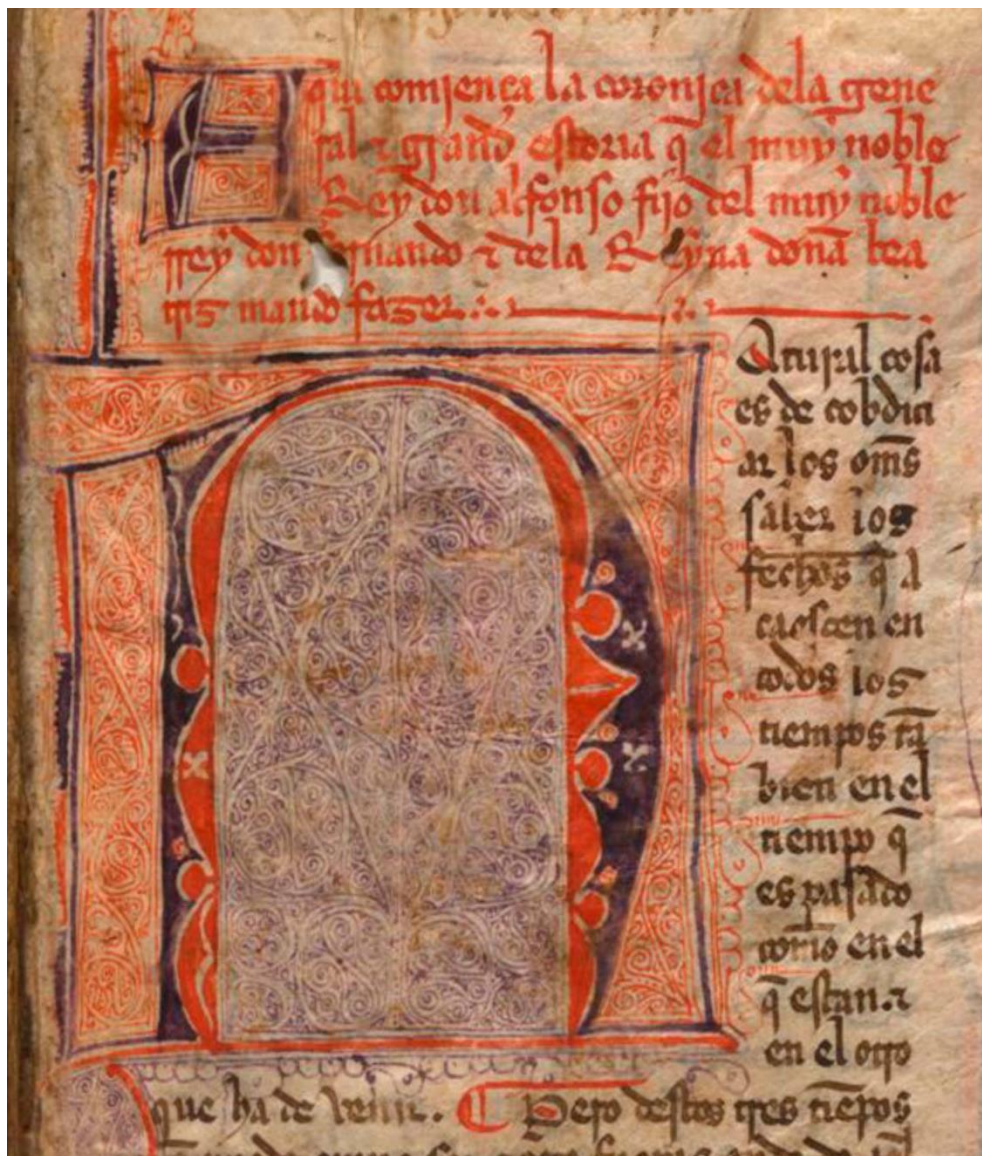 Aqui comjença la coronjca dela gene
ral ⁊ grand estoria q̃ el muy noble
Rey don alfonso fijo del muy noble
rrey don fernando ⁊ dela Reyna doña bea
tris mando faser
Natural cosa
es de cobdici
ar los om̃s
saber los
fechos q̃ a
caescen en
todos los
tiempos tã
bien en el
tiempo q̃
es pasado
com̃o en el
q̃ estan ⁊
en el otro
que ha de venir. ¶ Pero destos tres tiẽpos